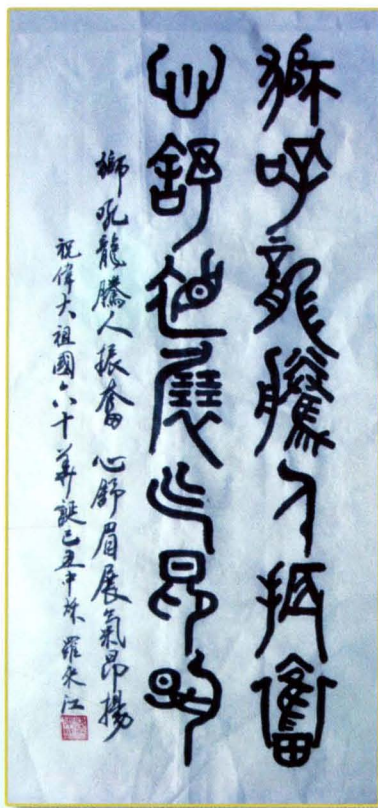 獅吼龍騰人振奮
心舒眉展氣昂揚
獅吼龍騰人振奮 心舒眉展氣昂揚
祝偉大祖國六十華誕己丑中秋 羅 江